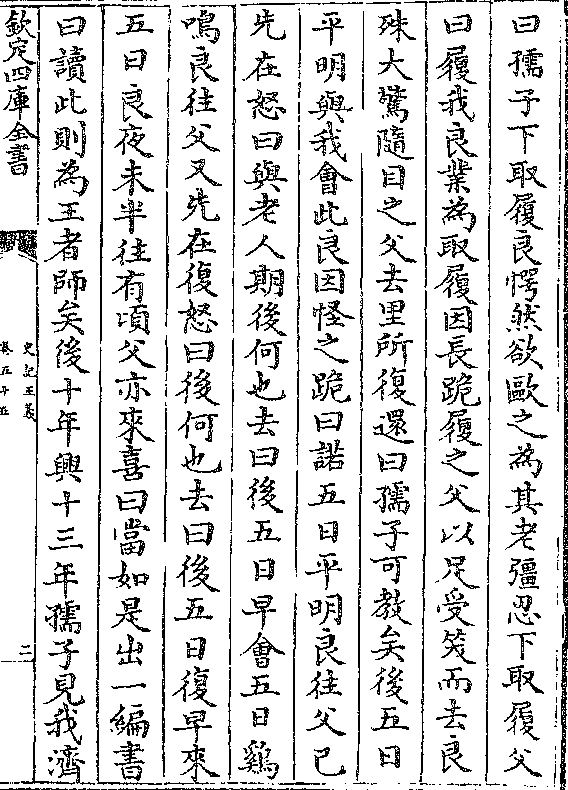 曰孺子下取履良愕然欲歐之為其老彊忍下取履父
曰履我良業為取履因長跪履之父以足受笑而去良
殊大驚隨目之父去里所復還曰孺子可教矣後五日
平明與我會此良因怪之跪曰諾五日平明良往父已
先在怒曰與老人期後何也去曰後五日早會五日鷄
鳴良往父又先在復怒曰後何也去曰後五日復早來
五日良夜未半往有頃父亦來喜曰當如是出一編書
曰讀此則為王者師矣後十年興十三年孺子見我濟
欽定四庫全書
史記正義
卷五十五
二